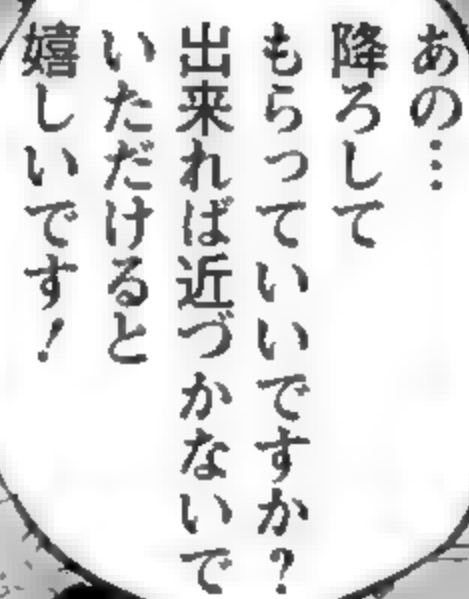 あの…
降ろして
もらっていいですか?
出来れば近づかないで
いただけると
嬉しいです!